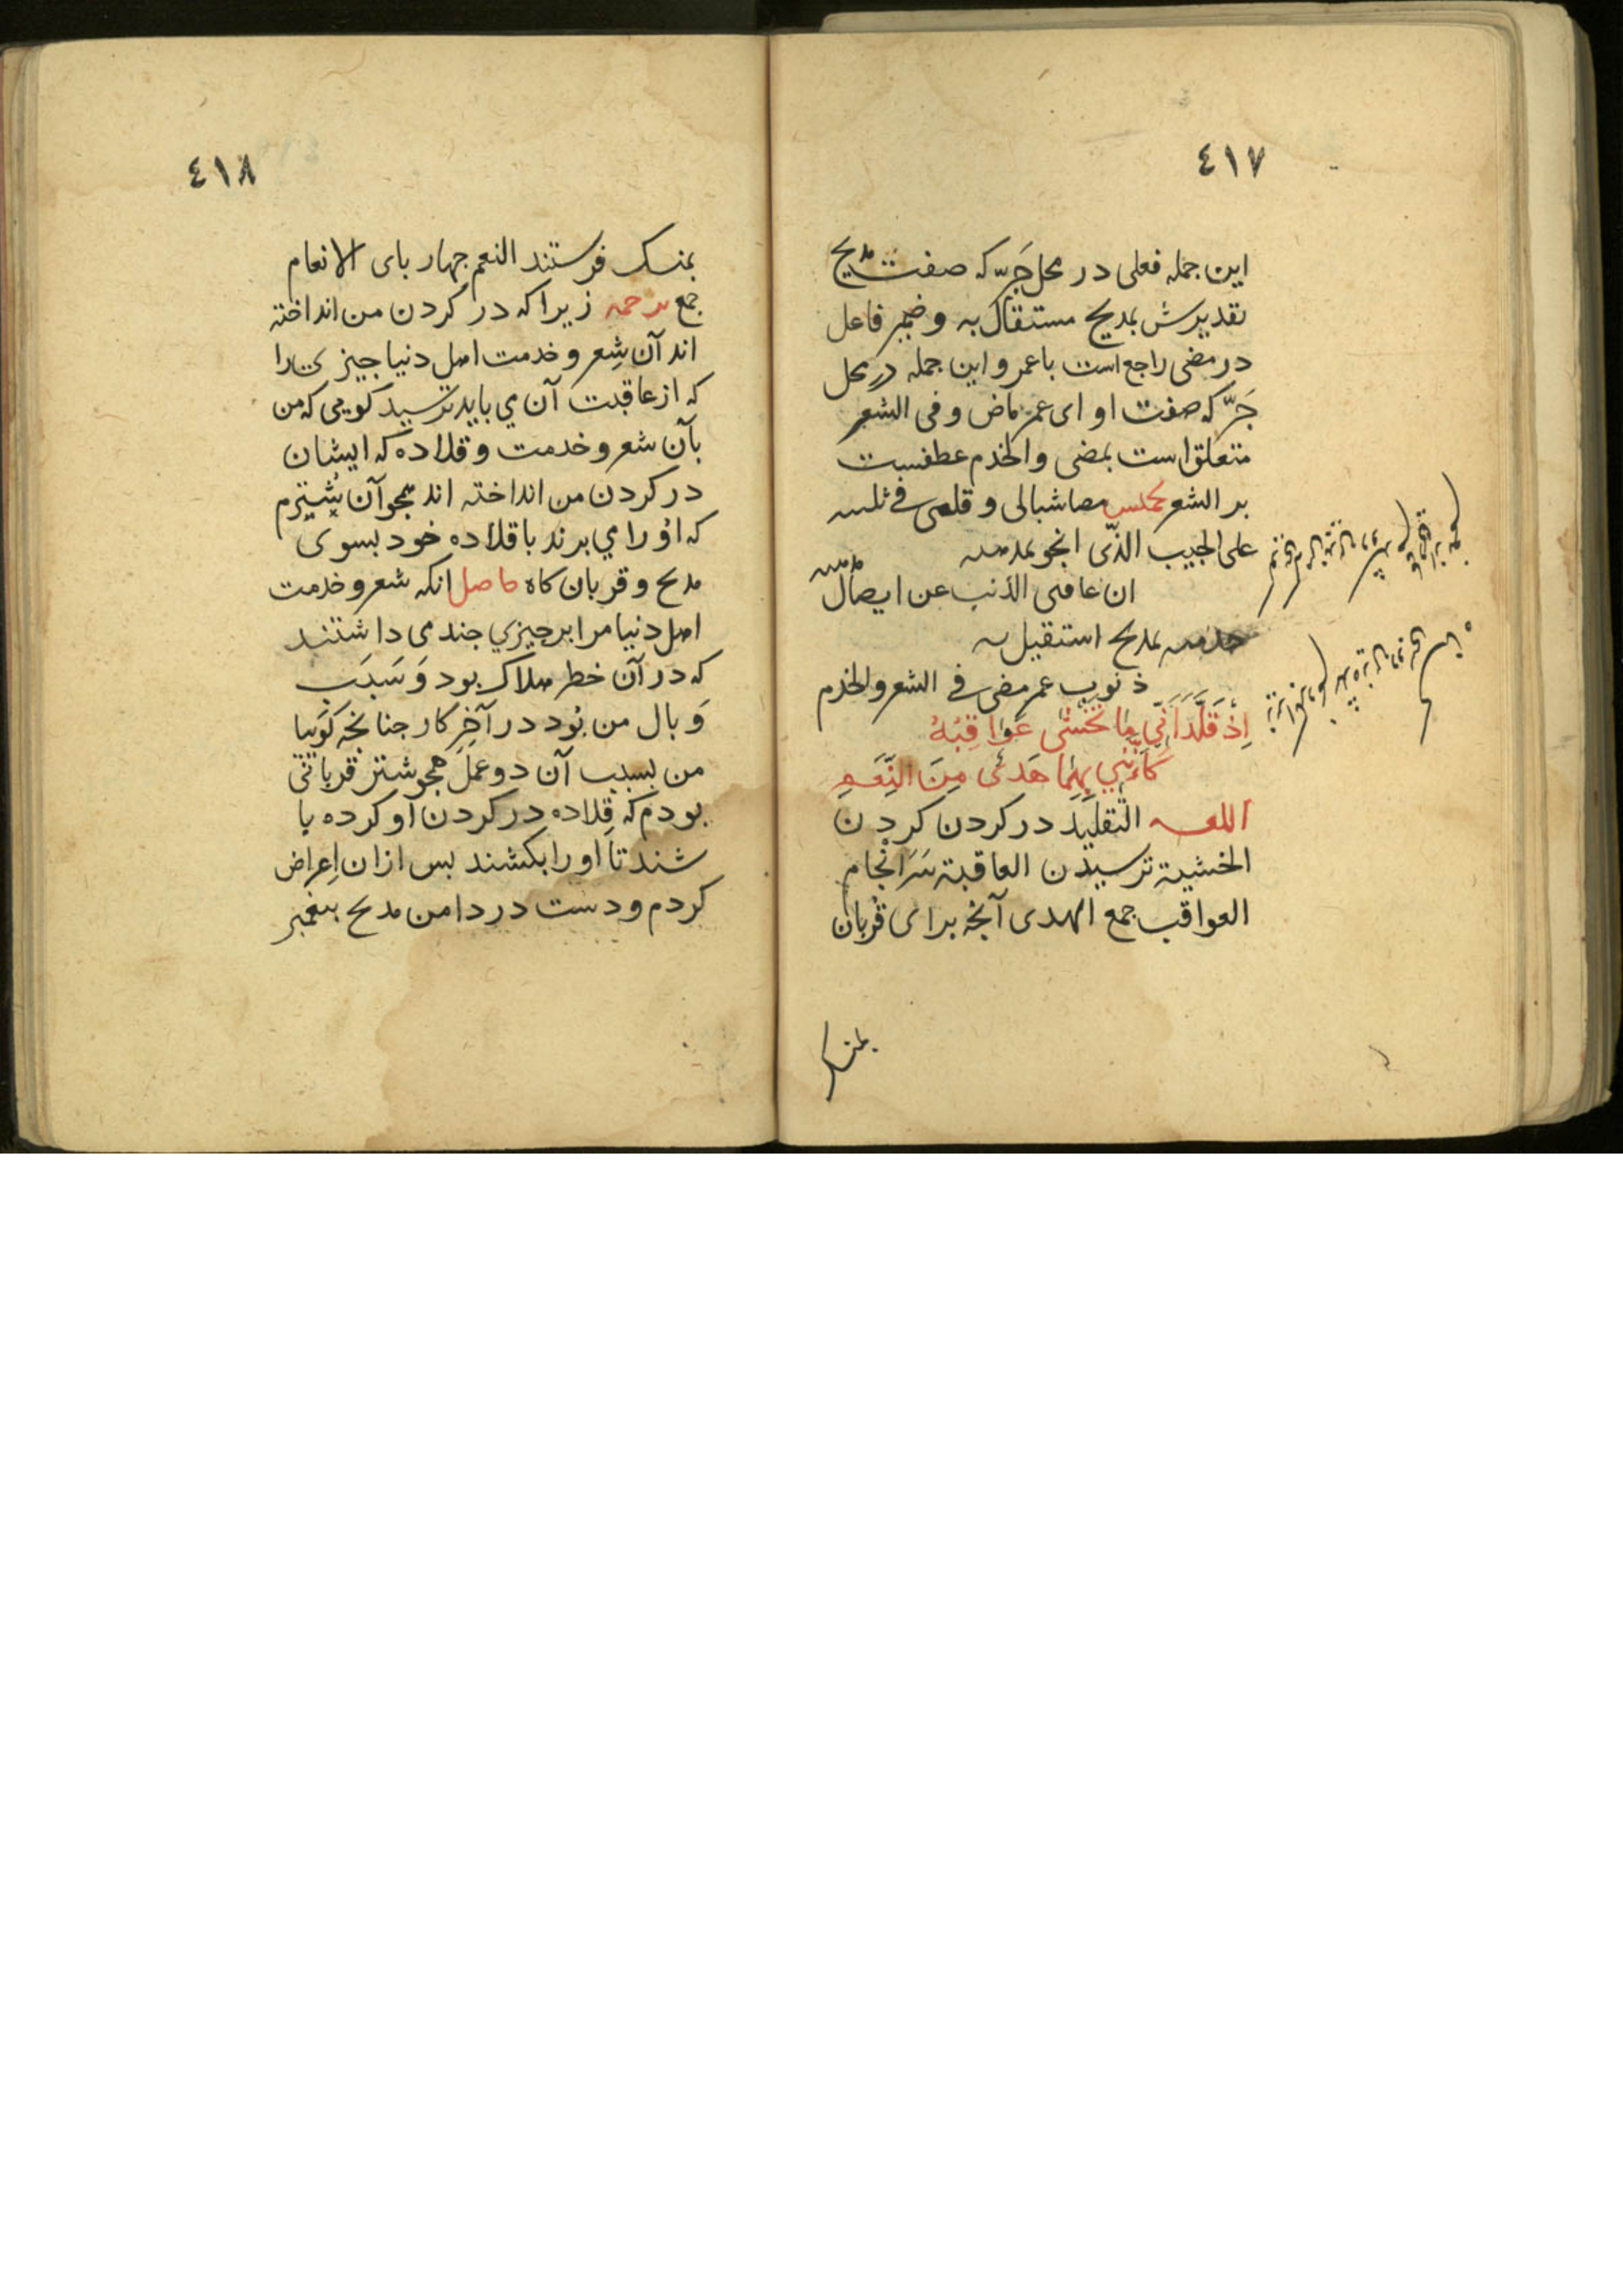 ٤١٧
این جمله فعلی در محل جَرّ که صفت مدیح
تقدیرش بمدیح مستقال به و ضمیر فاعل
در مضی راجع است با عمر و این جمله در محل
جَرّ که صفت او ای عمر ماض و فی الشعر
متعلق است بمضی و الخدم عطفست
بر الشعر و قلبی فی
علی الحبیب الذّی انجو
ان عاقنی الذنب عن ایصال
بمدیح استقیل به
ذنوب عمر مضی فی الشعر والخدم
اِذْ قَلَّدَانِّی مَا تُخْشٰی عَوَاقِبُهُ
کَاَنَّنِي بِهِمَا هَدْیٌ مِنَ النِّعَمِ
اللغه التقلید در کردن کردن
الخشیة ترسیدن العاقبة سَرَانْجام
العواقب جمع الهدی آنجه برای قربان
بمنسک
٤١٨
بمنسک فرستند النعم جهار بای الانعام
جمع ترجمه زیرا که در کردن من انداخته
اند آن شِعر و خدمت اهل دنیا جیزی را
که از عاقبت آن می باید ترسید کویی که من
بآن شعر و خدمت و قلاده که ایشان
در کردن من انداخته اند همجو آن شُتُرم
که اوُ را می برند با قلاده خود بسوی
مذبح و قربان کاه حاصل انکه شعر و خدمت
اهل دنیا مرا بر جیزی جند می داشتند
که در آن خطر هلاک بود وَ سَبَب
وَبال من بُود در آخِر کار جنانجه کوییا
من بسبب آن دو عمل همجو شتر قربانی
بودم که قلاده در کردن او کرده با
شند تا او را بکشند بس ازان اِعراض
کردم و دست در دامن مدح بیغمبر